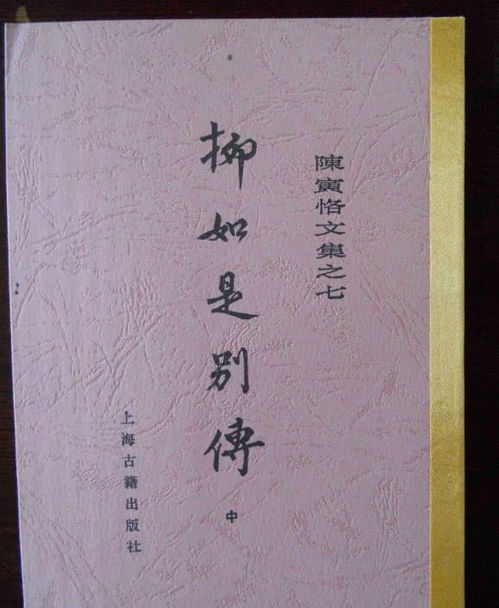 陳寅恪文集之七
柳如是别傳
中
上海古籍出版社